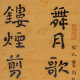 舞月歌
鏤煙剪